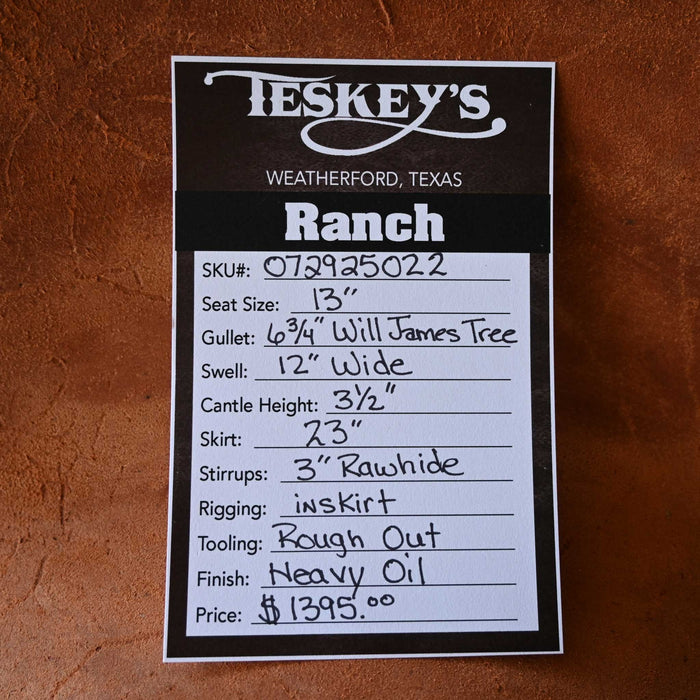 TESKEY'S
WEATHERFORD, TEXAS
Ranch
SKU#: 072925022
Seat Size: 13"
Gullet: 6 3/4" Will James Tree
Swell: 12" Wide
Cantle Height: 3 1/2"
Skirt: 23"
Stirrups: 3" Rawhide
Rigging: inskirt
Tooling: Rough Out
Finish: Heavy Oil
Price: $1395.00